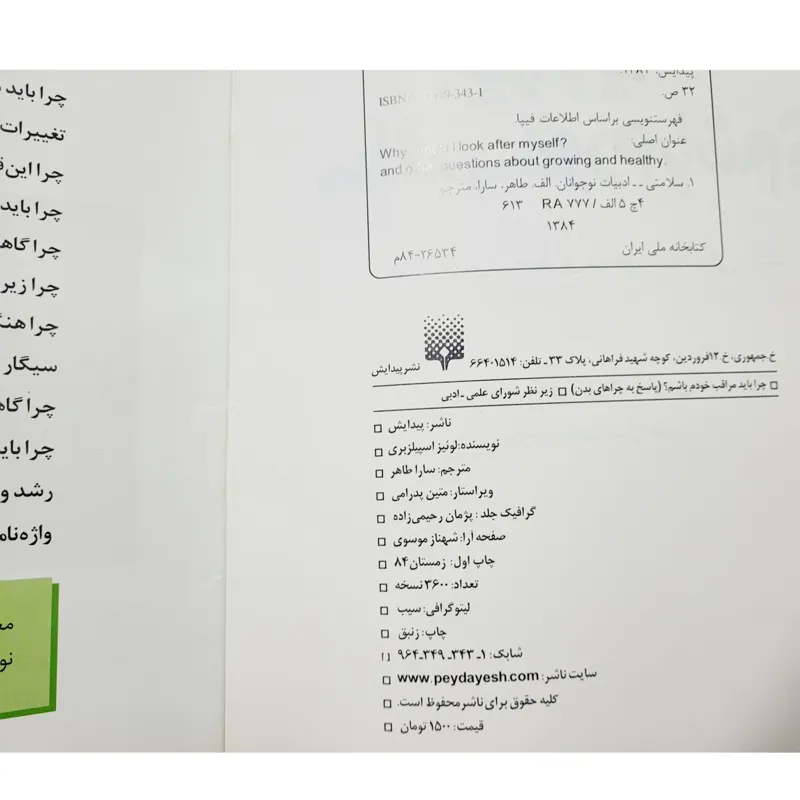 چرا باید
تغییرات
چرا این
چرا باید
چرا گاه
چرا زیر
چرا هنگ
سیگار
چرا گاه
چرا باید
رشد و
واژه‌نام
پیدایش، ۱۳۸۴.
۳۲ ص.
ISBN 343-1
فهرستنویسی براساس اطلاعات فیپا.
عنوان اصلی:
Why look after myself?
and questions about growing and healthy.
۱. سلامتی -- ادبیات نوجوانان. الف. طاهر، سارا، مترجم
۴چ ۵ الف / RA ۷۷۷ ۶۱۳
۱۳۸۴
کتابخانه ملی ایران ۲۶۵۳۴-۸۴م
خ.جمهوری، خ.۱۲فروردین، کوچه شهید فراهانی، پلاک ۳۳ ـ تلفن: ۶۶۴۰۱۵۱۴ نشر پیدایش
□ چرا باید مراقب خودم باشم؟ (پاسخ به چراهای بدن) □ زیر نظر شورای علمی ـ ادبی
ناشر: پیدایش □
نویسنده:لوئیز اسپیلزبری □
مترجم: سارا طاهر □
ویراستار: متین پدرامی □
گرافیک جلد : پژمان رحیمی‌زاده □
صفحه آرا: شهناز موسوی □
چاپ اول: زمستان ۸۴ □
تعداد: ۳۶۰۰ نسخه □
لیتوگرافی: سیب □
چاپ: زنبق □
شابک: ۱ـ ۳۴۳ـ ۳۴۹ـ۹۶۴ □
سایت ناشر: www.peydayesh.com □
کلیه حقوق برای ناشر محفوظ است. □
قیمت: ۱۵۰۰ تومان □